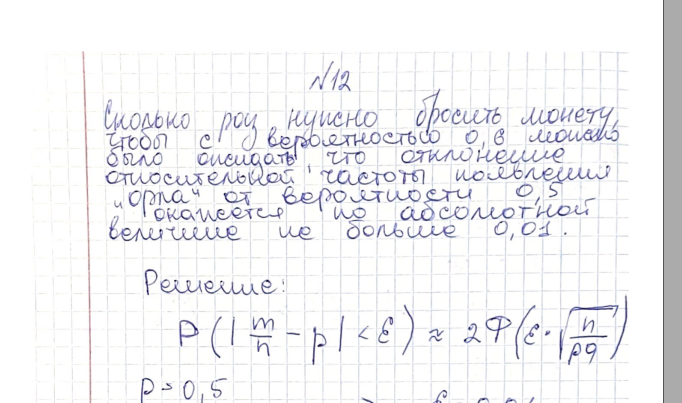 №12
Сколько раз нужно бросить монету,
чтобы с вероятностью 0,6 можно
было ожидать, что отклонение
относительной частоты появления
„орла" от вероятности 0,5
окажется по абсолютной
величине не больше 0,01.
Решение:
P(|m/n - p| < ε) ≈ 2Φ(ε·√(n/pq))
p = 0,5